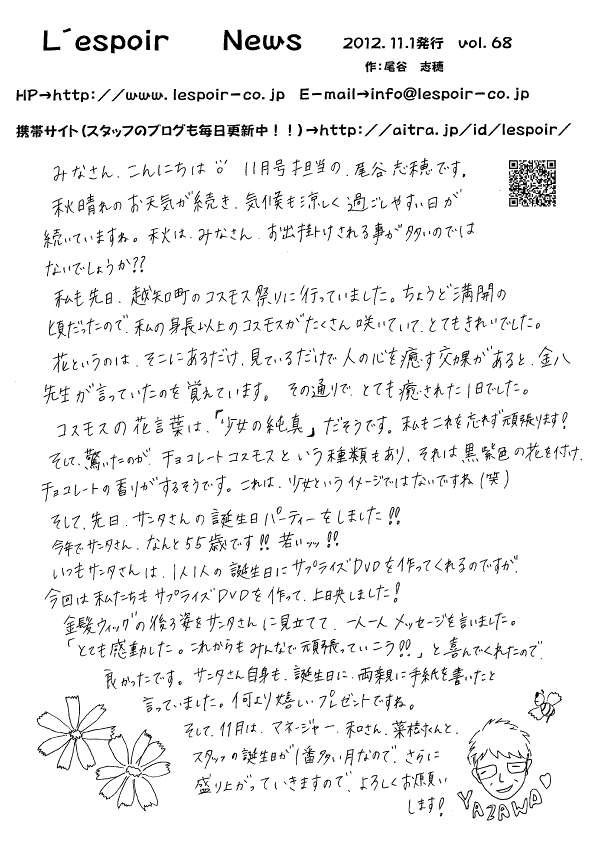 L´espoir News 2012.11.1発行 vol.68
作：尾谷 志穂
HP→http://www.lespoir-co.jp E-mail→info@lespoir-co.jp
携帯サイト(スタッフのブログも毎日更新中！！)→http://aitra.jp/id/lespoir/
みなさん、こんにちは 11月号担当の、尾谷志穂です。
秋晴れのお天気が続き、気候も涼しく過ごしやすい日が
続いていますね。秋は、みなさん、お出掛けされる事が多いのでは
ないでしょうか??
私も先日、越知町のコスモス祭りに行っていました。ちょうど満開の
頃だったので、私の身長以上のコスモスがたくさん咲いていて、とてもきれいでした。
花というのは、そこにあるだけ、見ているだけで人の心を癒す効果があると、金八
先生が言っていたのを覚えています。その通りで、とても癒された1日でした。
コスモスの花言葉は、「少女の純真」だそうです。私もこれを忘れず頑張ります!
そして、驚いたのが、チョコレートコスモスという種類もあり、それは黒紫色の花を付け、
チョコレートの香りがするそうです。これは、少女というイメージではないですね(笑)
そして、先日、サンタさんの誕生日パーティーをしました!!
今年でサンタさん、なんと55歳です!! 若いッッ!!
いつもサンタさんは、1人1人の誕生日にサプライズDVDを作ってくれるのですが、
今回は私たちもサプライズDVDを作って、上映しました!
金髪ウィッグの後ろ姿をサンタさんに見立てて、一人一人メッセージを言いました。
「とても感動した。これからもみんなで頑張っていこう!!」と喜んでくれたので、
良かったです。サンタさん自身も、誕生日に、両親に手紙を書いたと
言っていました。何より嬉しいプレゼントですね。
そして、11月は、マネージャー、和さん、葉樹くんと、
スタッフの誕生日が1番多い月なので、さらに
盛り上がっていきますので、よろしくお願い
します!
YAZAWA